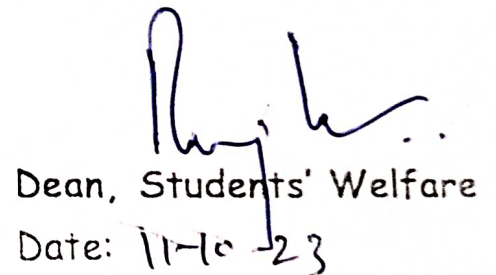 Dean, Students' Welfare
Date: 11-10-23